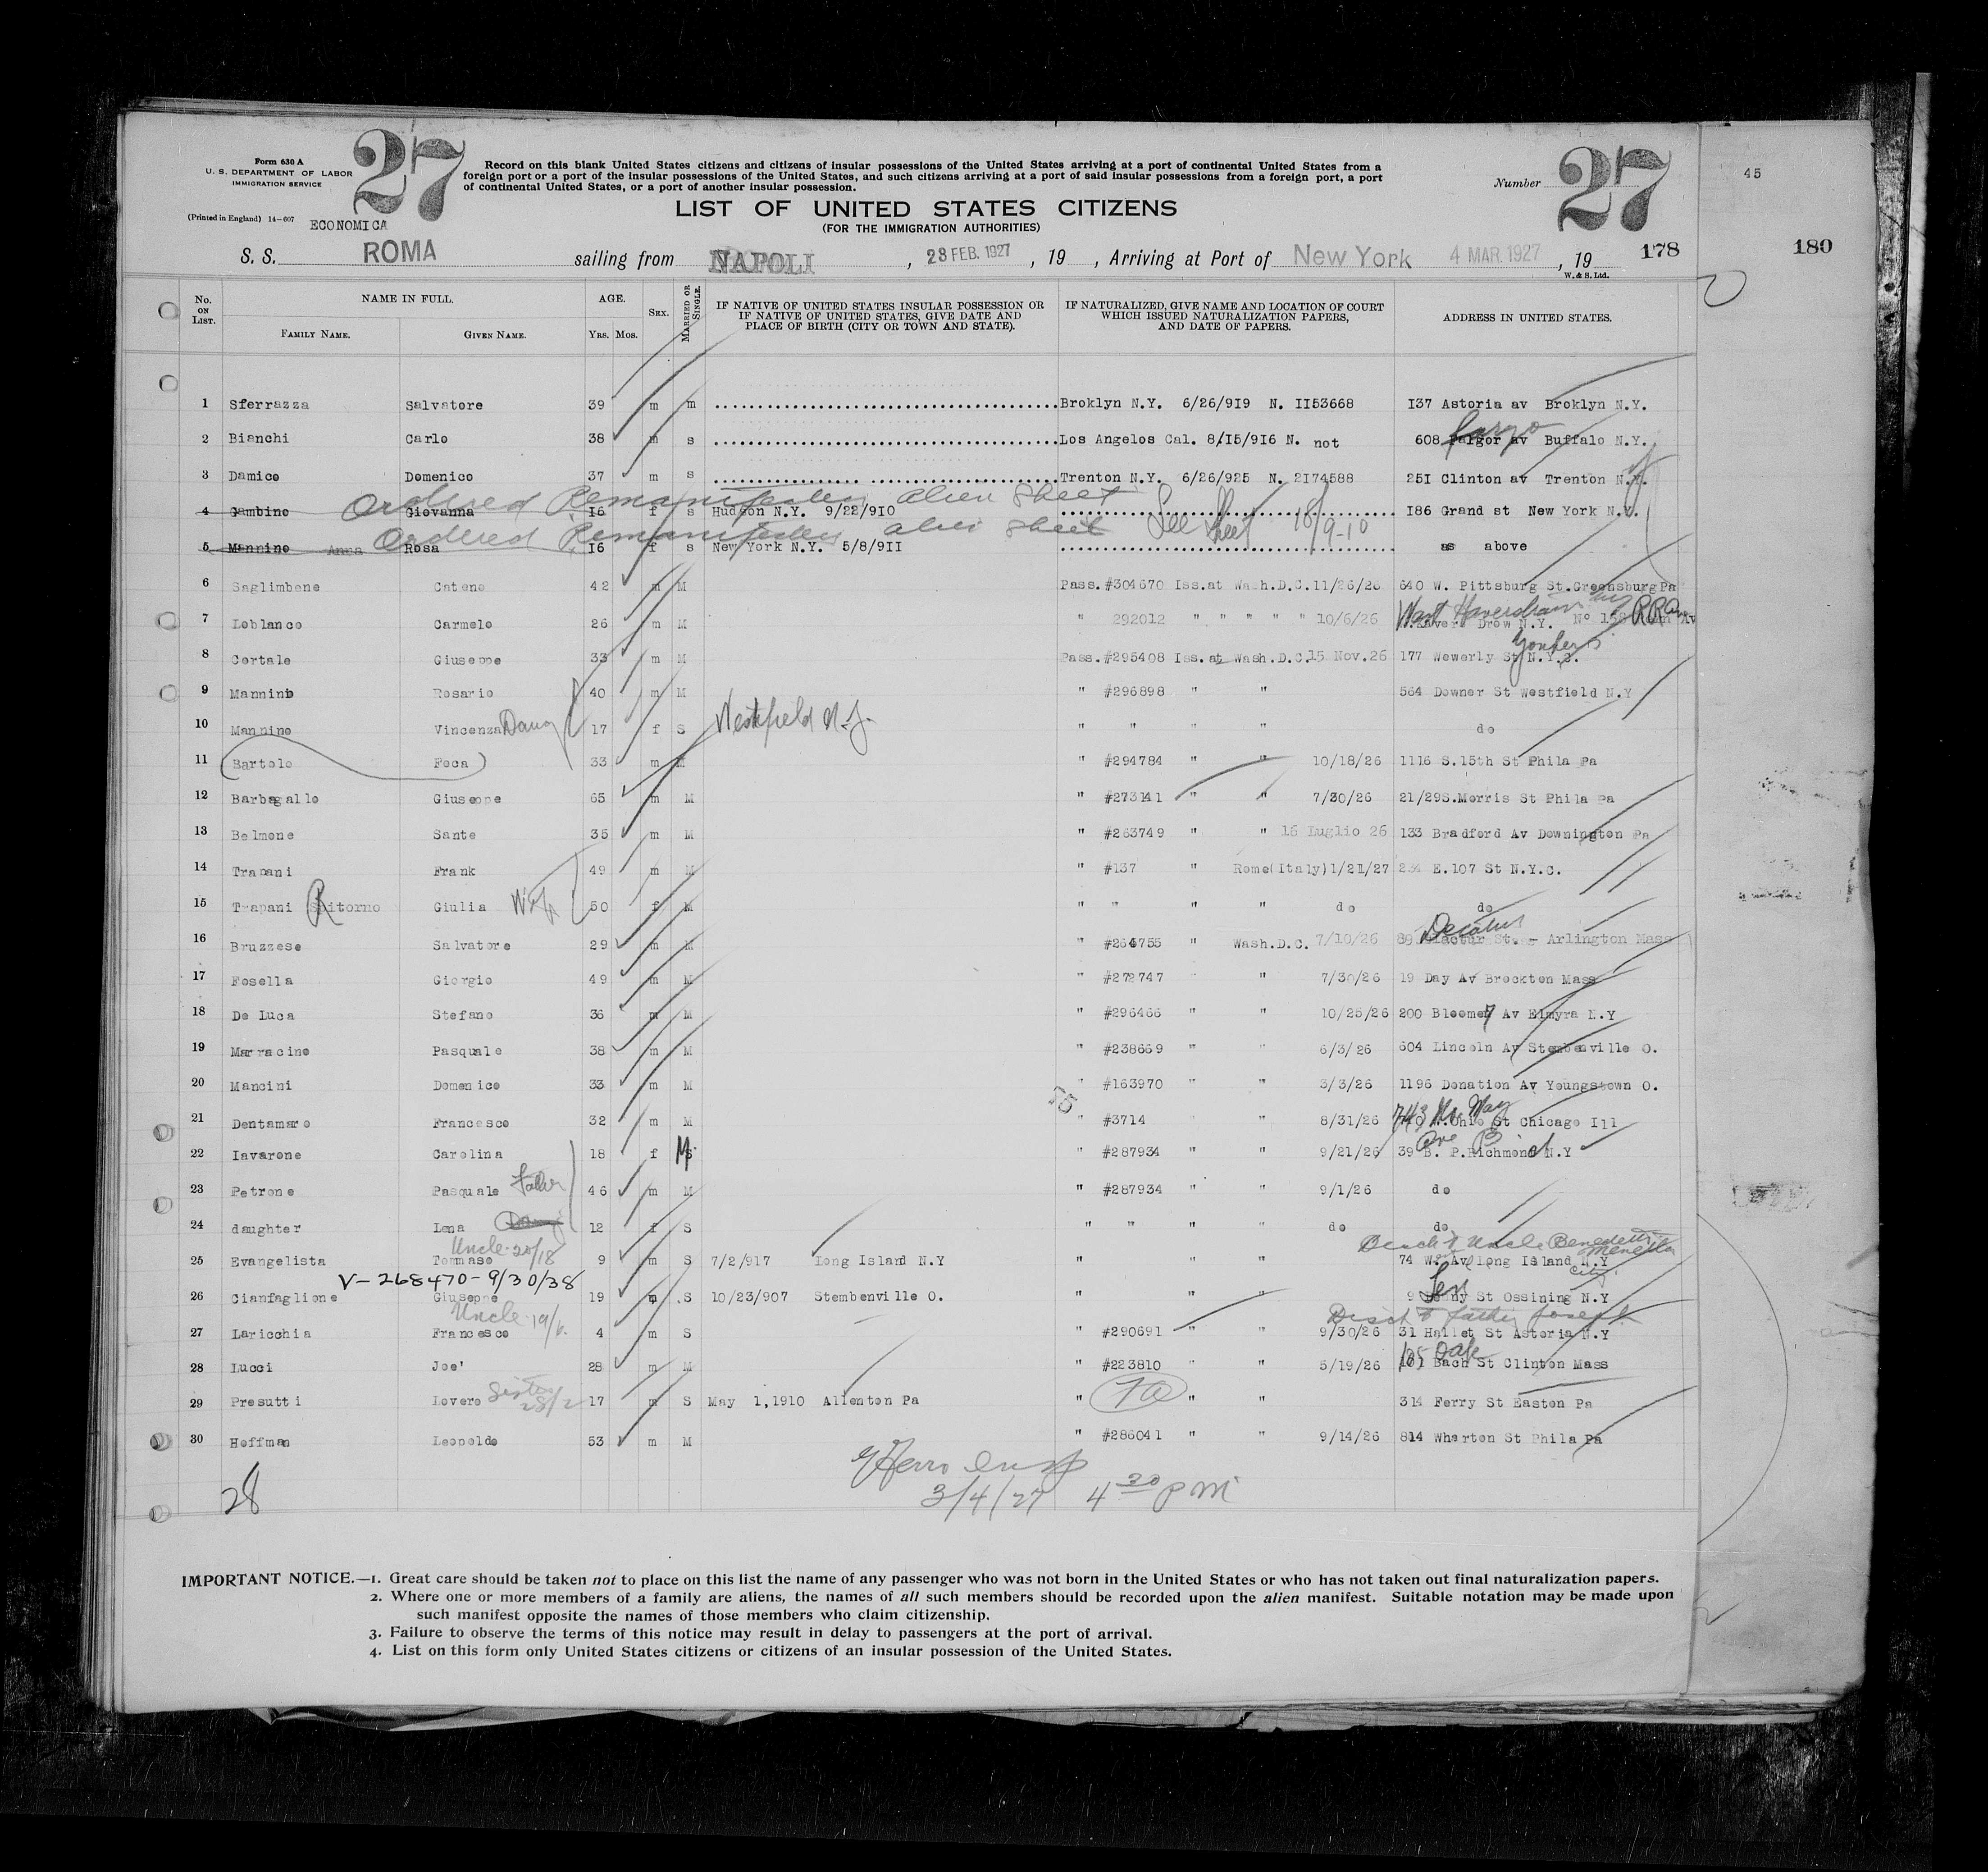 Form 630 A
U. S. DEPARTMENT OF LABOR
IMMIGRATION SERVICE
(Printed in England) 14-607
27
ECONOMICA
Record on this blank United States citizens and citizens of insular possessions of the United States arriving at a port of continental United States from a
foreign port or a port of the insular possessions of the United States, and such citizens arriving at a port of said insular possessions from a foreign port, a port
of continental United States, or a port of another insular possession.
LIST OF UNITED STATES CITIZENS
(FOR THE IMMIGRATION AUTHORITIES)
Number 27
45
S. S. ROMA sailing from NAPOLI, 28 FEB. 1927, 19 , Arriving at Port of New York 4 MAR. 1927, 19 178
W. & S. Ltd.
180
No. ON LIST. NAME IN FULL. AGE. SEX. MARRIED OR SINGLE. IF NATIVE OF UNITED STATES INSULAR POSSESSION OR IF NATIVE OF UNITED STATES, GIVE DATE AND PLACE OF BIRTH (CITY OR TOWN AND STATE). IF NATURALIZED, GIVE NAME AND LOCATION OF COURT WHICH ISSUED NATURALIZATION PAPERS, AND DATE OF PAPERS. ADDRESS IN UNITED STATES.
FAMILY NAME. GIVEN NAME. YRS. MOS.
1 Sferrazza Salvatore 39 m m Broklyn N.Y. 6/26/919 N. II53668 I37 Astoria av Broklyn N.Y.
2 Bianchi Carlo 38 m s Los Angelos Cal. 8/I5/9I6 N. not 608 Fargo av Buffalo N.Y.
3 Damico Domenico 37 m s Trenton N.Y. 6/26/925 N. 2I74588 25I Clinton av Trenton N.Y.
Ordered Remanifested alien sheet
4 Gambino Giovanna I6 f s Hudson N.Y. 9/22/9I0 I86 Grand st New York N.Y.
Ordered Remanifested alien sheet See Sheet 18/9-10
5 Mannino Anna Rosa I6 f s New York N.Y. 5/8/9II as above
6 Saglimbene Cateno 42 m M Pass.#304670 Iss.at Wash.D.C.11/26/26 640 W. Pittsburg St.Greensburg Pa
7 Loblanco Carmelo 26 m M " 292012 " " " " " 10/6/26 West Haverstraw N.Y. RR Av
8 Cortale Giuseppe 33 m M Pass.#295408 Iss.at Wash.D.C.15 Nov.26 177 Wewerly St N.Y.C. Yonkers
9 Mannino Rosario 40 m M " #296898 " " 564 Downer St Westfield N.Y
10 Mannino Vincenza Daug 17 f S Westfield N.J. " " " " do
11 Bartolo Foca 33 m M " #294784 " " 10/18/26 1116 S.15th St Phila Pa
12 Barbagallo Giuseppe 65 m M " #273141 " " 7/30/26 21/29S.Morris St Phila Pa
13 Belmone Sante 35 m M " #263749 " " 16 Luglio 26 133 Bradford Av Downington Pa
14 Trapani Frank 49 m M " #137 " Rome(Italy)1/21/27 234 E.107 St N.Y.C.
15 Trapani Giulia Wife 50 f M " " " " do do
16 Bruzzese Salvatore 29 m M " #264755 " Wash.D.C. 7/10/26 89 Decatur St. - Arlington Mass
17 Fosella Giorgio 49 m M " #272747 " " 7/30/26 19 Day Av Brockton Mass
18 De Luca Stefano 36 m M " #296466 " " 10/25/26 200 Bloomer Av Elmyra N.Y
19 Marracino Pasquale 38 m M " #238669 " " 6/3/26 604 Lincoln Av Stembenville O.
20 Mancini Domenico 33 m M " #163970 " " 3/3/26 1196 Donation Av Youngstown O.
21 Dentamaro Francesco 32 m M " #3714 " " 8/31/26 743 May Ohio St Chicago Ill
22 Iavarone Carolina 18 f M " #287934 " " 9/21/26 39 B. P.Richmond N.Y
23 Petrone Pasquale Father 46 m M " #287934 " " 9/1/26 do
24 daughter Lena Daug 12 f S " " " " do do
Uncle 20/18 Disch to Uncle Benedetto
25 Evangelista Tommaso 9 m S 7/2/917 Long Island N.Y " " " 74 W. Av Long Island N.Y City
V-268470-9/30/38
26 Cianfaglione Giuseppe 19 m S 10/23/907 Stembenville O. " " " 9 St Ossining N.Y
Uncle 19/6. Disch to father Joseph
27 Laricchia Francesco 4 m S " #290691 " " 9/30/26 31 Hallet St Astoria N.Y
28 Lucci Joe' 28 m M " #223810 " " 5/19/26 105 Oak St Clinton Mass
29 Presutti Lovero Sister 28/2 17 m S May 1,1910 Allenton Pa " " " 314 Ferry St Easton Pa
30 Hoffman Leopoldo 53 m M " #286041 " " 9/14/26 814 Wharton St Phila Pa
28
3/4/27 4 30 P M
IMPORTANT NOTICE.—1. Great care should be taken not to place on this list the name of any passenger who was not born in the United States or who has not taken out final naturalization papers.
2. Where one or more members of a family are aliens, the names of all such members should be recorded upon the alien manifest. Suitable notation may be made upon
such manifest opposite the names of those members who claim citizenship.
3. Failure to observe the terms of this notice may result in delay to passengers at the port of arrival.
4. List on this form only United States citizens or citizens of an insular possession of the United States.